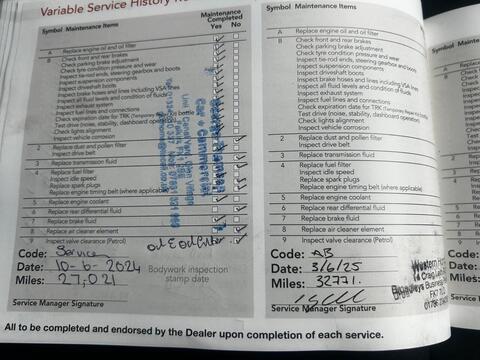 Variable Service History
Symbol Maintenance Items
Maintenance
Completed
Yes No
A Replace engine oil and oil filter
B Check front and rear brakes
Check parking brake adjustment
Check tyre condition and pressure and wear
Inspect tie-rod ends, steering gearbox and boots
Inspect suspension components
Inspect driveshaft boots
Inspect brake hoses and lines including VSA lines
Inspect all fluid levels and condition of fluids
Inspect exhaust system
Inspect fuel lines and connections
Check expiration date for TRK (Temporary bottle
Test drive (noise, stability, dashboard operation)
Check lights alignment
Inspect vehicle corrosion
2 Replace dust and pollen filter
Inspect drive belt
3 Replace transmission fluid
4 Replace fuel filter
Inspect idle speed
Replace spark plugs
Replace engine timing belt (where applicable)
5 Replace engine coolant
6 Replace rear differential fluid
7 Replace brake fluid
8 Replace air cleaner element
9 Inspect valve clearance (Petrol)
Code: Service
Date: 10-6-2024
Miles: 27,021
oil & oil filter
Bodywork inspection
stamp date
Service Manager Signature
Symbol Maintenance Items
A Replace engine oil and oil filter
B Check front and rear brakes
Check parking brake adjustment
Check tyre condition and pressure and wear
Inspect tie-rod ends, steering gearbox and boots
Inspect suspension components
Inspect driveshaft boots
Inspect brake hoses and lines including VSA lines
Inspect all fluid levels and condition of fluids
Inspect exhaust system
Inspect fuel lines and connections
Check expiration date for TRK (Temporary Repair Kit) bottle
Test drive (noise, stability, dashboard operation)
Check lights alignment
Inspect vehicle corrosion
2 Replace dust and pollen filter
Inspect drive belt
3 Replace transmission fluid
4 Replace fuel filter
Inspect idle speed
Replace spark plugs
Replace engine timing belt (where applicable)
5 Replace engine coolant
6 Replace rear differential fluid
7 Replace brake fluid
8 Replace air cleaner element
9 Inspect valve clearance (Petrol)
Code: AB
Date: 3/6/25
Miles: 32771.
Western
Craig
Business
FK7 7
Service Manager Signature
All to be completed and endorsed by the Dealer upon completion of each service.